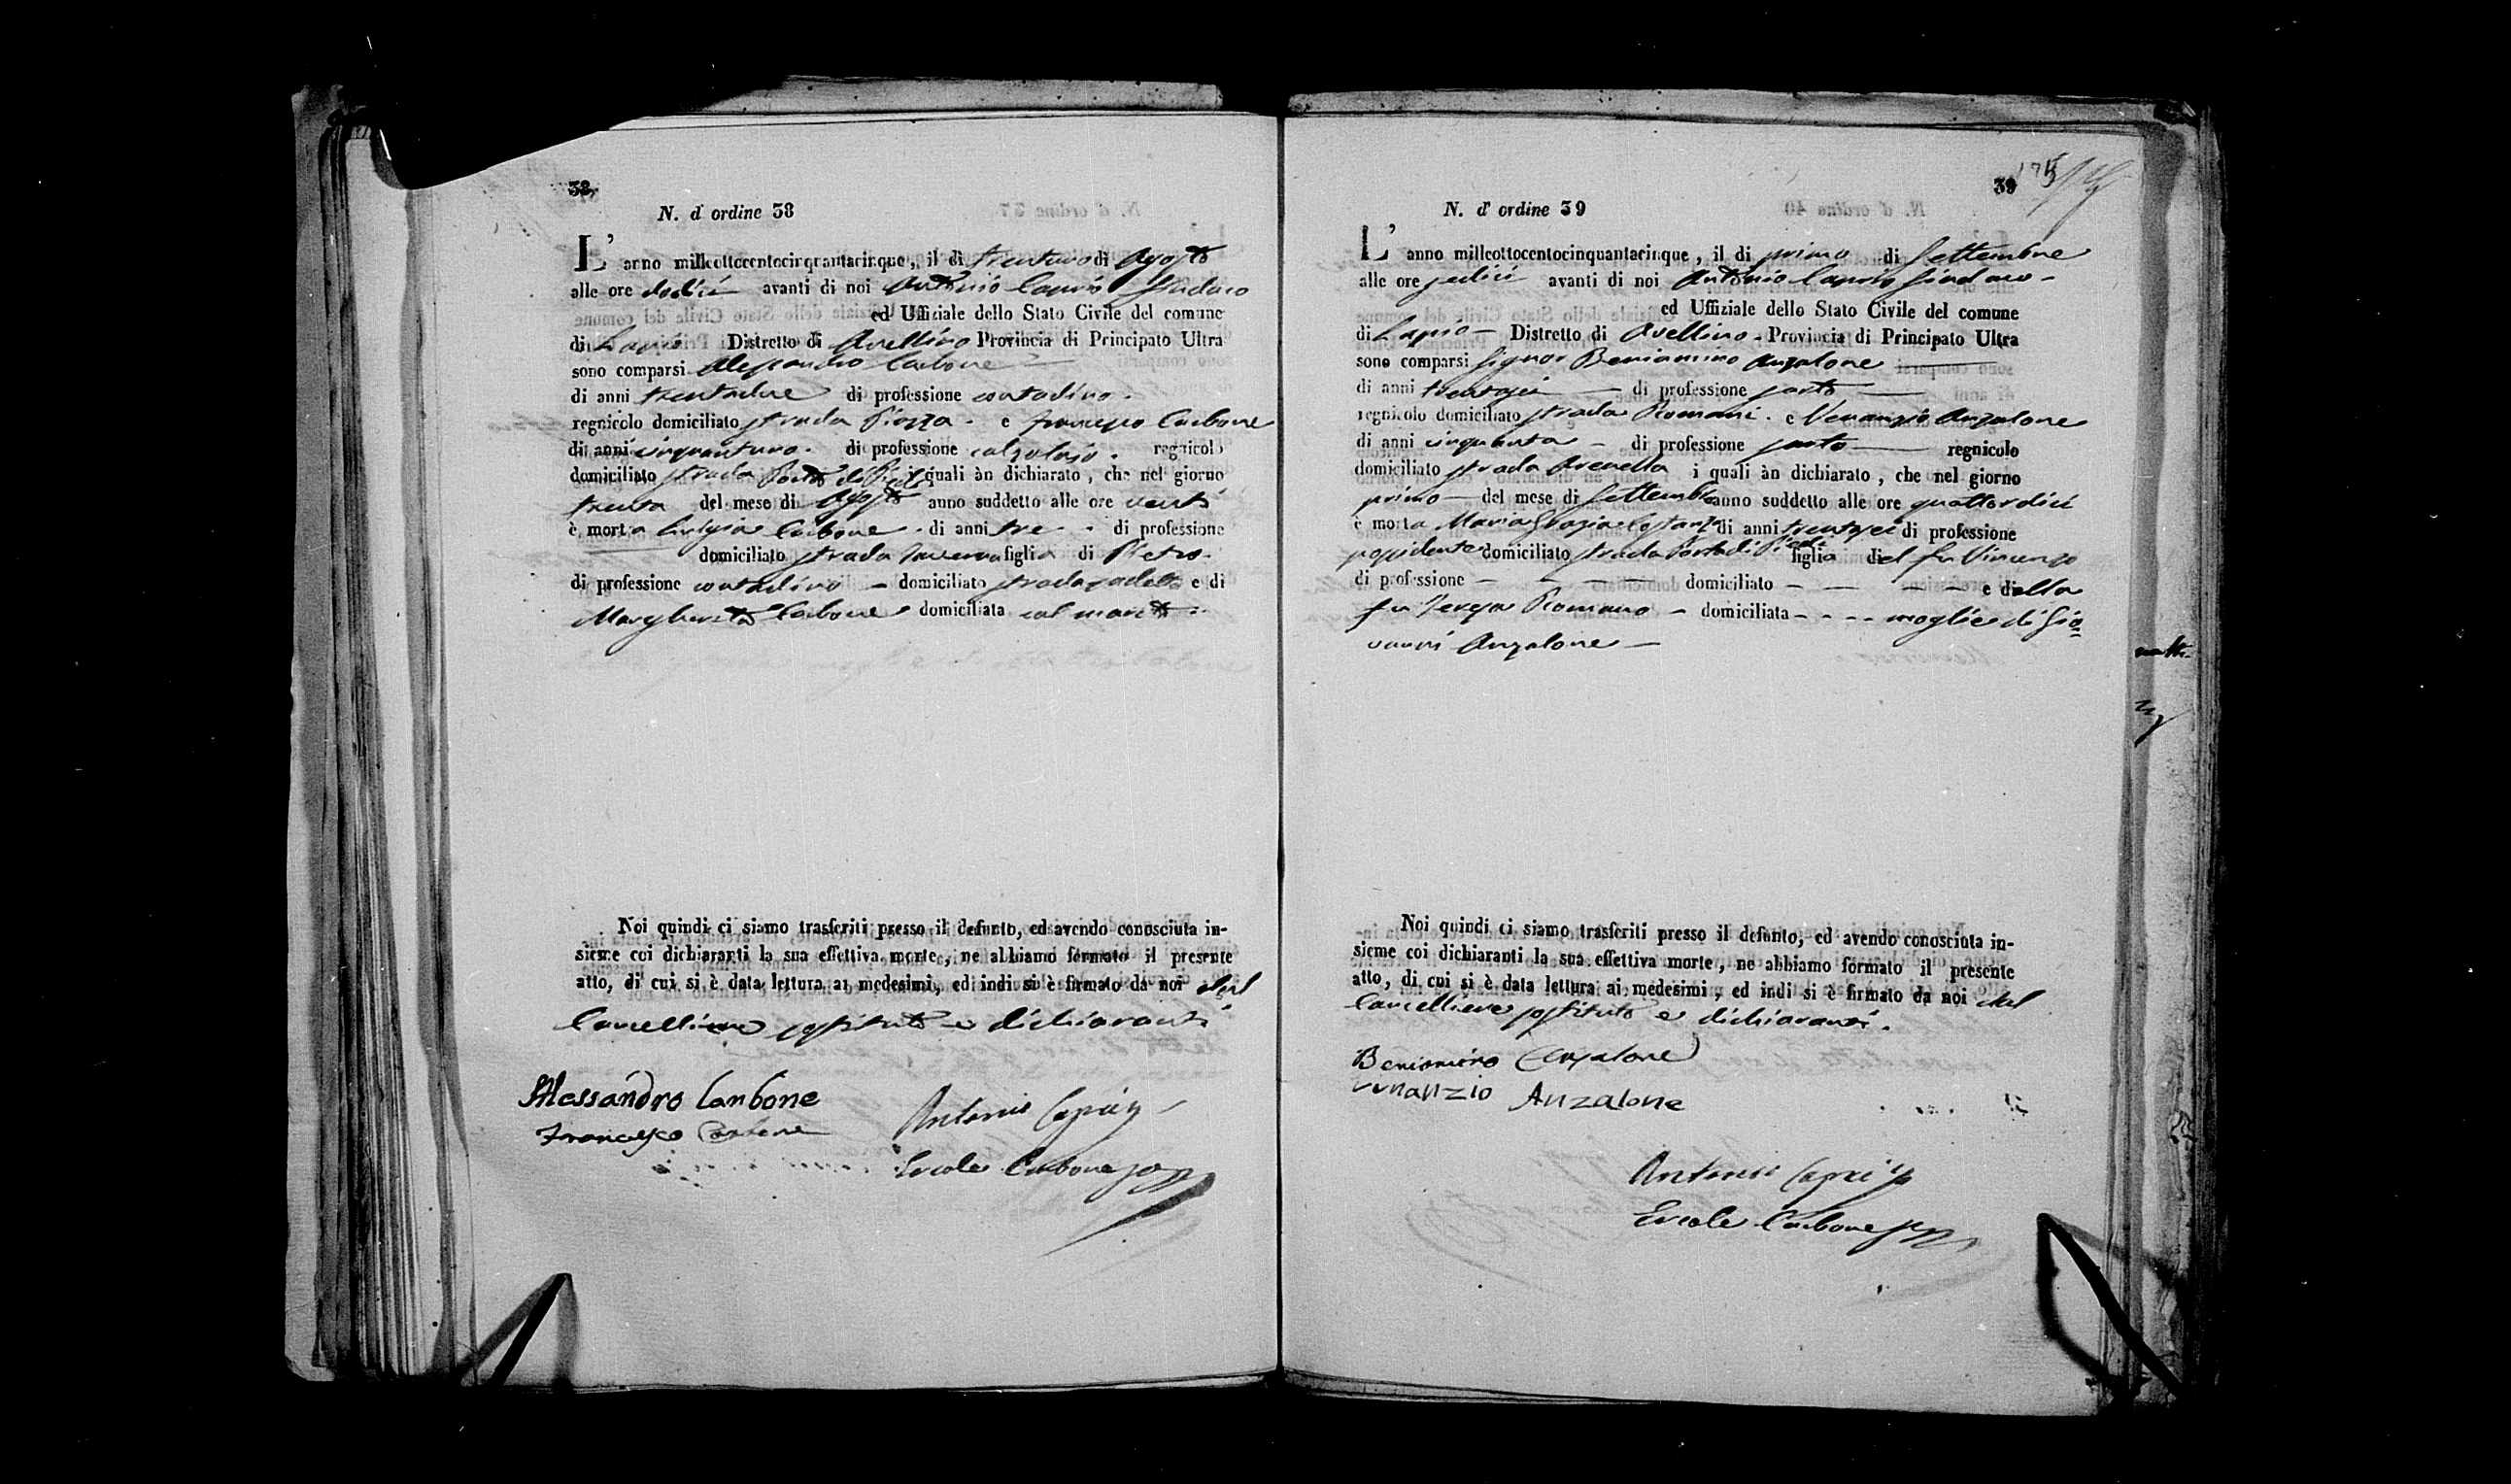 38
N. d' ordine 38
L' anno millecottocentocinquantacinque, il di trentuno di Agosto
alle ore dodici avanti di noi Antonio Capriò Sindaco
ed Uffiziale dello Stato Civile del comune
di Lapio Distretto di Avellino Provincia di Principato Ultra
sono comparsi Alessandro Carbone
di anni trentadue di professione contadino.
regnicolo domiciliato strada Piazza. e Francesco Carbone
di anni cinquantuno. di professione calzolajo. regnicolo
domiciliato strada Porta di Piedi quali àn dichiarato, che nel giorno
trenta del mese di Agosto anno suddetto alle ore venti
è morta Luigia Carbone. di anni tre. di professione
domiciliato strada figlia di Pietro.
di professione contadino domiciliato strada sudetta e di
Margherita Carbone domiciliata col marito
Noi quindi ci siamo trasferiti presso il defunto, ed avendo conosciuta in-
sieme coi dichiaranti la sua effettiva morte, ne abbiamo formato il presente
atto, di cui si è data lettura ai medesimi, ed indi si è firmato da noi dal
Cancelliere sostituto e dichiaranti
Alessandro Carbone
Francesco Carbone
Antonio
Ercole Carbone
39
N. d' ordine 39
L' anno millecottocentocinquantacinque, il di primo di Settembre
alle ore sedici avanti di noi Antonio Capriò Sindaco
ed Uffiziale dello Stato Civile del comune
di Lapio Distretto di Avellino Provincia di Principato Ultra
sono comparsi Signor Beniamino Anzalone
di anni trentasei di professione sarto
regnicolo domiciliato strada Romani. e Venanzio Anzalone
di anni cinquanta di professione sarto regnicolo
domiciliato strada Arenella i quali àn dichiarato, che nel giorno
primo del mese di Settembre anno suddetto alle ore quattordici
è morta Maria Grazia Costanza di anni trentasei di professione
possidente domiciliato strada Porta di Piedi figlia del fu Vincenzo
di professione domiciliato e della
fu Teresa Romano domiciliata moglie di Gio=
vanni Anzalone
Noi quindi ci siamo trasferiti presso il defunto, ed avendo conosciuta in-
sieme coi dichiaranti la sua effettiva morte, ne abbiamo formato il presente
atto, di cui si è data lettura ai medesimi, ed indi si è firmato da noi dal
Cancelliere sostituto e dichiaranti.
Beniamino Anzalone
Venanzio Anzalone
Antonio
Ercole Carbone